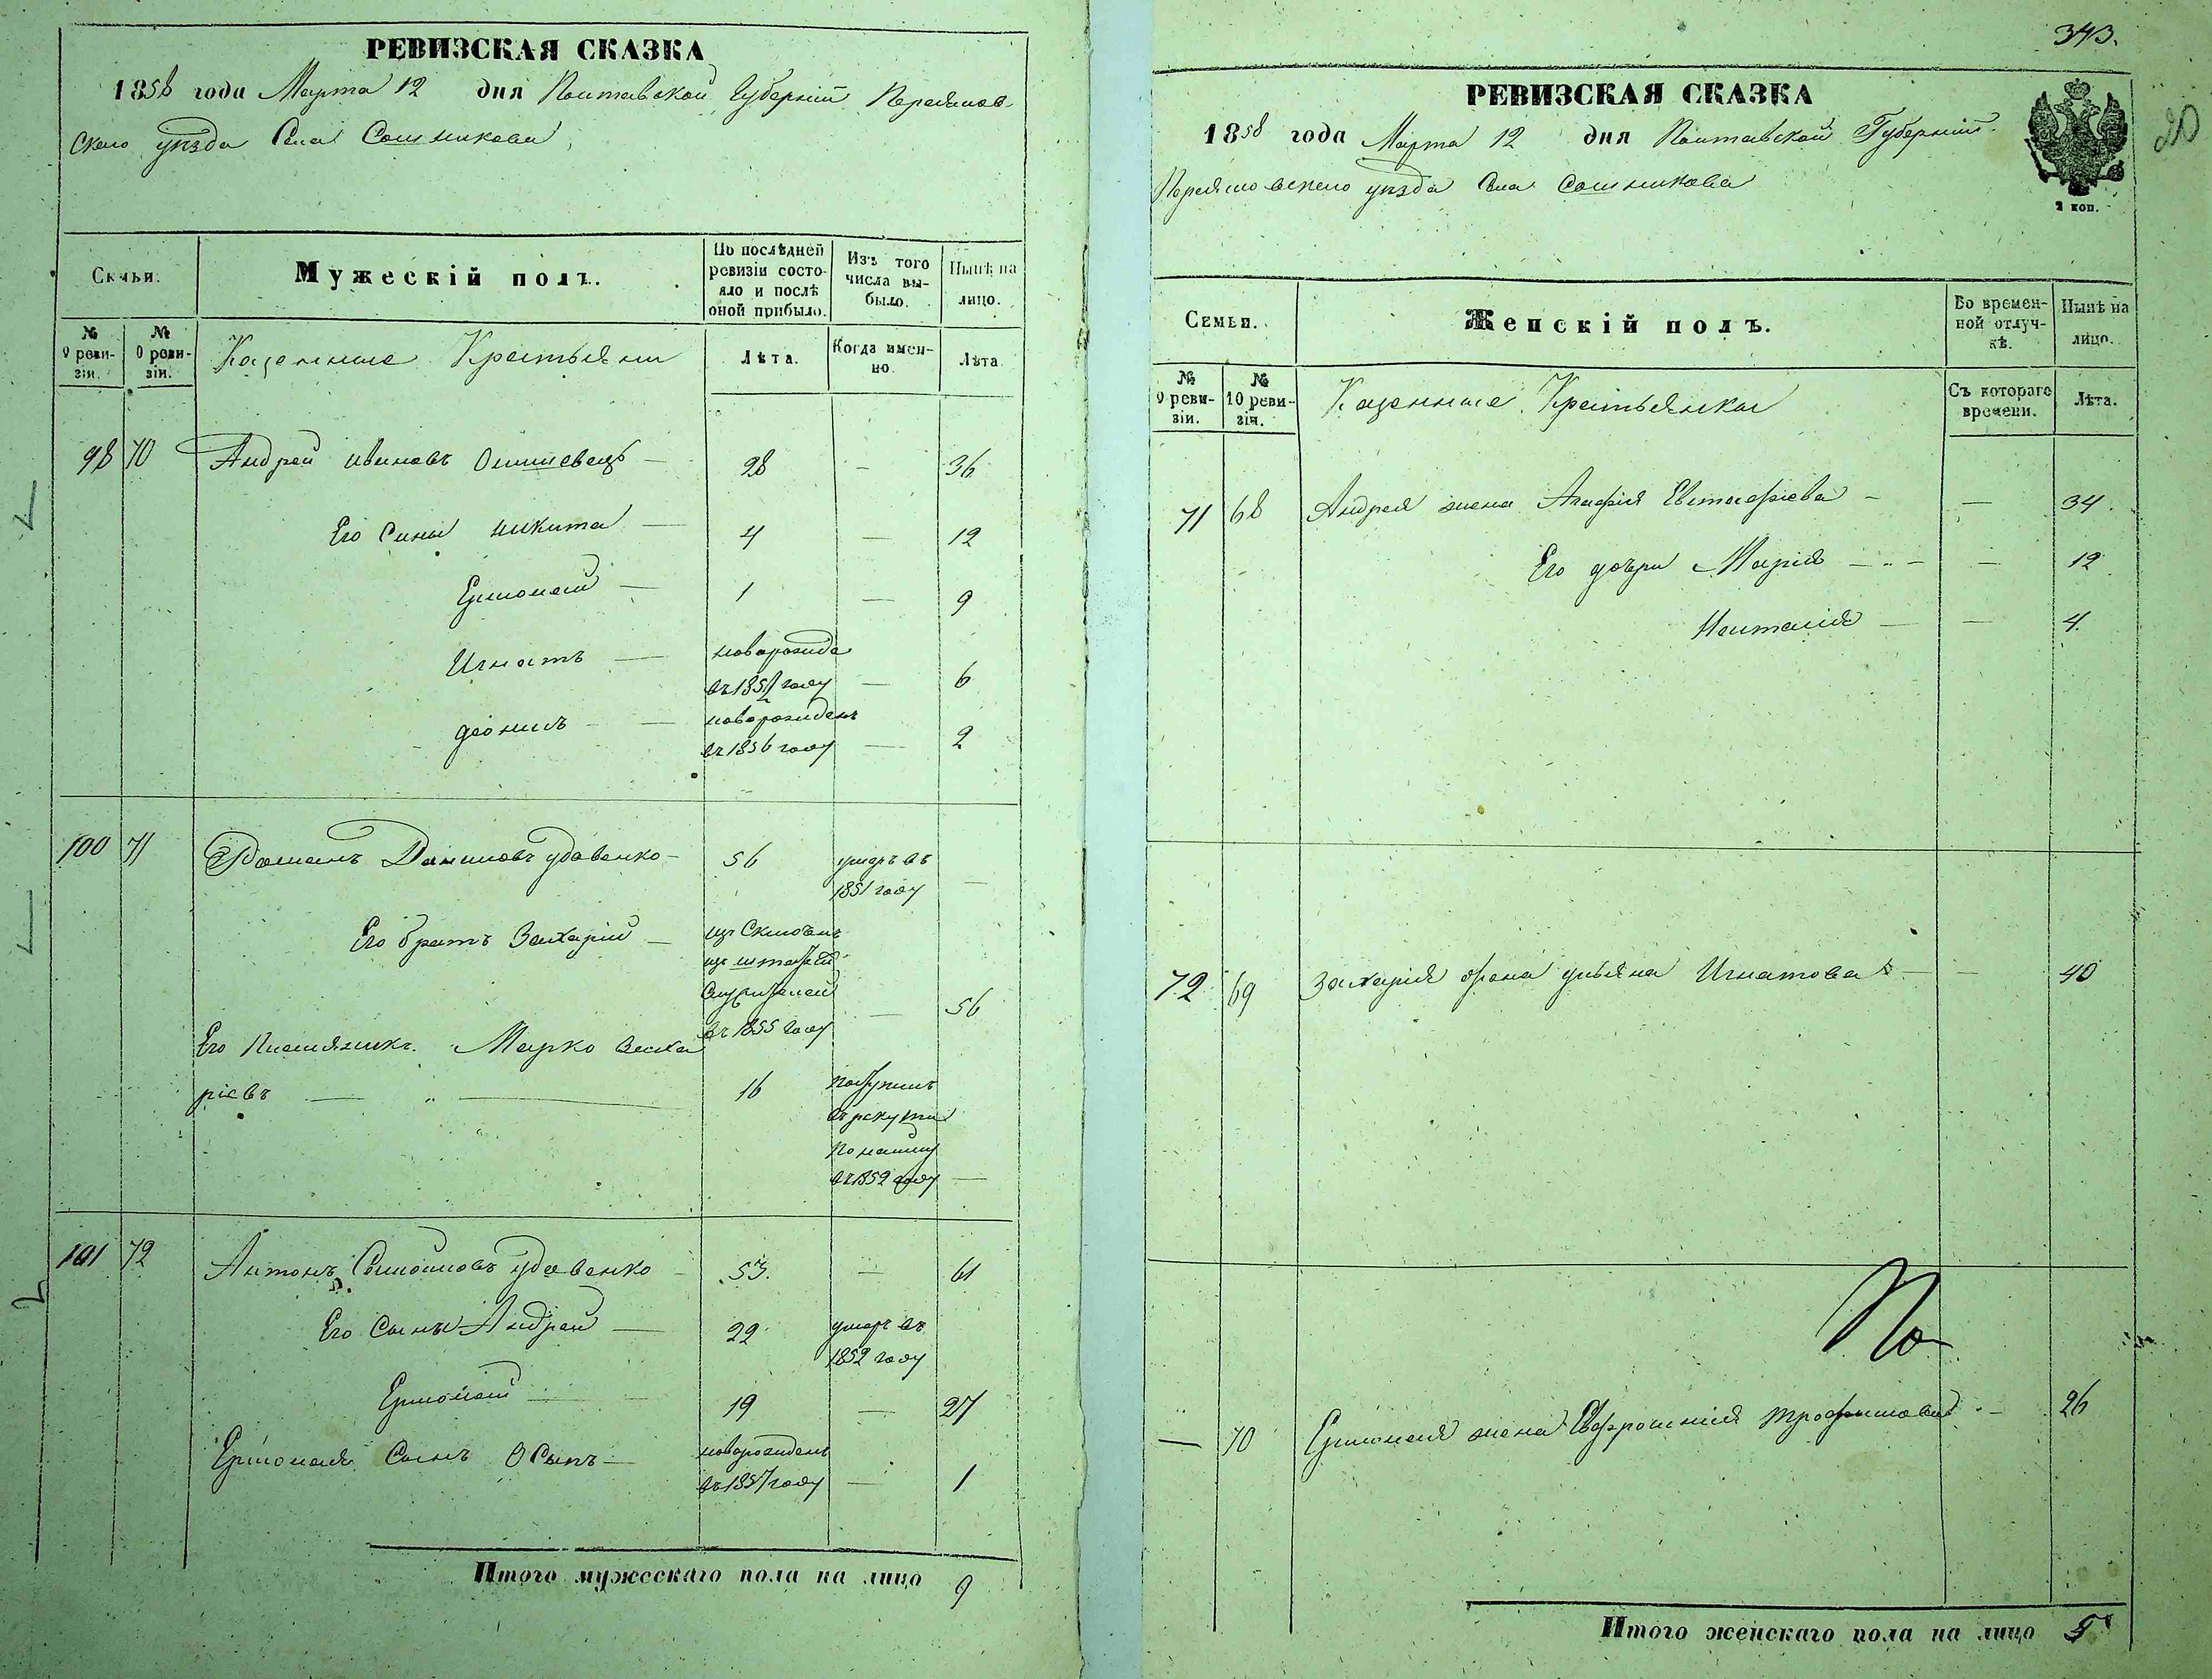 РЕВИЗСКАЯ СКАЗКА
1858 года Марта 12 дня Полтавской Губерніи Переяслов-
скаго уѣзда Села Сошникова
Семьи.
Мужескій полъ.
По послѣдней ревизіи состояло и послѣ оной прибыло.
Изъ того числа выбыло.
Нынѣ на лицо.
№ 9 ревизіи.
№ 10 ревизіи.
Казенные Крестьяни
Лѣта.
Когда именно.
Лѣта
98 70 Андрей Ивановъ 28 — 36
Его Сины Никита — 4 — 12
Ермолай — 1 — 9
Игнатъ — новорожде
въ 1852 году — 6
Деонис — новорожденъ
въ 1856 году — 2
100 71 Романъ Даниловъ Удовенко — 56 умеръ въ
1851 году —
Его братъ Захарій —
въ 1855 году — 56
Его Племяникъ Марко Заха
ріевъ — „ — 16 поступилъ
въ рекруты
по найму
въ 1852 году —
101 72 Антонъ Самойловъ Удовенко — 53. — 61
Его Сыны Андрей — 22 умеръ въ
1852 году
Ермолай — 19 — 27
Ермолая Сынъ Осипъ — новорожденъ
въ 1857 году — 1
Итого мужескаго пола на лицо 9
343.
20
РЕВИЗСКАЯ СКАЗКА
1858 года Марта 12 дня Полтавской Губерніи
Переясловскаго уѣзда Села Сошникова
2 коп.
Семьи.
Женскій полъ.
Во временной отлучкѣ.
Нынѣ на лицо.
№ 9 ревизіи.
№ 10 ревизіи.
Казенные Крестьянки
Съ котораго времени.
Лѣта.
71 68 Андрея жена Агафія Евстафіева — — 34.
Его дочери Марія — „ — — 12
Наталія — — 4.
72 69 Захарія жена Ульяна Игнатова — — 40
По
— 70 Ермолая жена Евфросинія Трофимова — 26
Итого женскаго пола на лицо 5